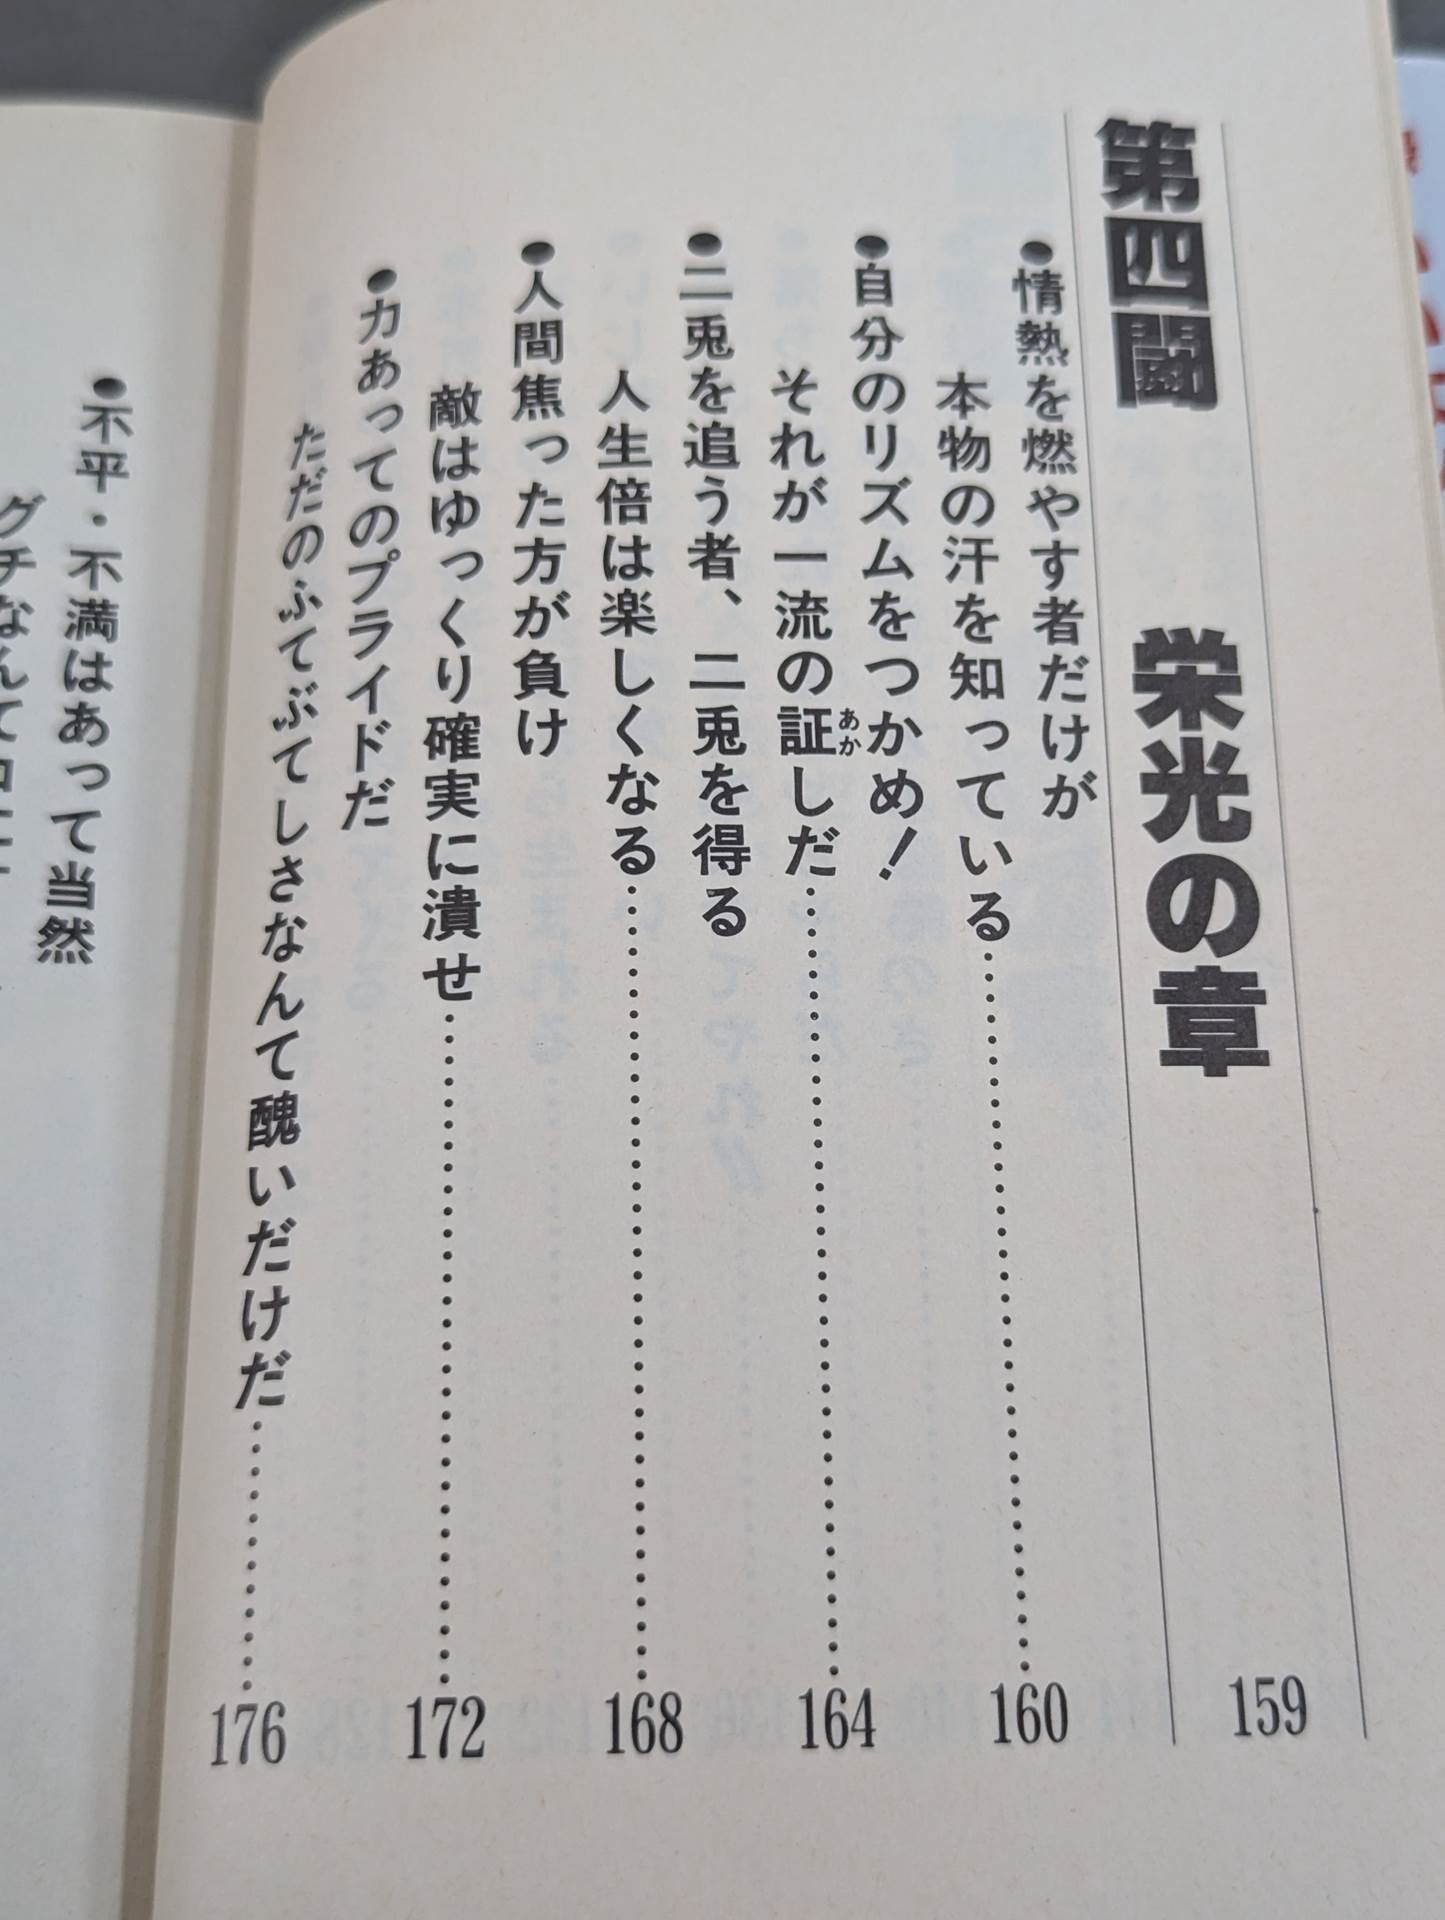 第四闘 栄光の章 159
●情熱を燃やす者だけが
本物の汗を知っている…………160
●自分のリズムをつかめ!
それが一流の証しだ…………164
あか
●二兎を追う者、二兎を得る
人生倍は楽しくなる…………168
●人間焦った方が負け
敵はゆっくり確実に潰せ…………172
●力あってのプライドだ
ただのふてぶてしさなんて醜いだけだ…………176
●不平・不満はあって当然
グチなんて